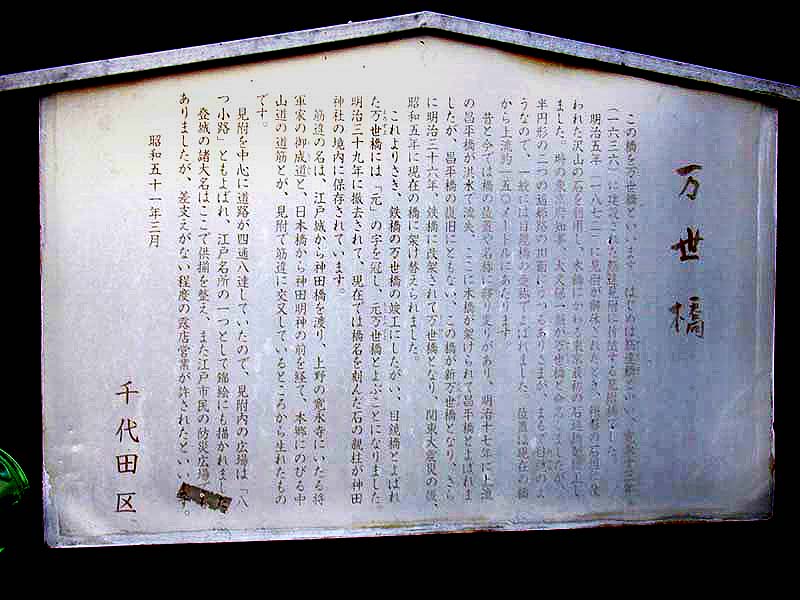 万世橋
この橋を万世橋といいます。はじめは筋違橋といい、寛永十三年
（一六三六）に建設された筋違見附に付随する見附橋でした。
明治五年（一八七二）に見附が解体されたとき、桝形の石垣に使
われた沢山の石を利用し、木橋にかわって東京最初の石造橋が
ました。時の東京府知事、大久保一翁が万世橋と命名しましたが、
半円形の二つの通船路の川面にうつるありさまが、まるで目鏡のよ
うなので、一般には目鏡橋の愛称でよばれました。位置は現在の橋
から上流約一五〇メートルにあたります。
昔と今では橋の位置や名称に移り変りがあり、明治十七年に上流
の昌平橋が洪水で流失、ここに木橋が架けられて昌平橋とよばれま
したが、昌平橋の復旧にともない、この橋が新万世橋となり、さら
に明治三十六年、鉄橋に改架されて万世橋となり、関東大震災の後、
昭和五年に現在の橋に架け替えられました。
これよりさき、鉄橋の万世橋の竣工にしたがい、目鏡橋とよばれ
た万世橋には「元」の字を冠し、元万世橋とよぶことになりました。
明治三十九年に撤去されて、現在では橋名を刻んだ石の親柱が神田
神社の境内に保存されています。
筋違の名は、江戸城から神田橋を渡り、上野の寛永寺にいたる将
軍家の御成道と、日本橋から神田明神の前を経て、本郷にのびる中
山道の道筋とが、見附で筋違に交叉しているところから生れたもの
です。
見附を中心に道路が四通八達していたので、見附内の広場は「八
つ小路」ともよばれ、江戸名所の一つとして錦絵にも描かれました
登城の諸大名はここで供揃を整え、また江戸市民の防災広場で
ありましたが、差支えがない程度の露店営業が許されたといいます。
昭和五十一年三月
千代田区